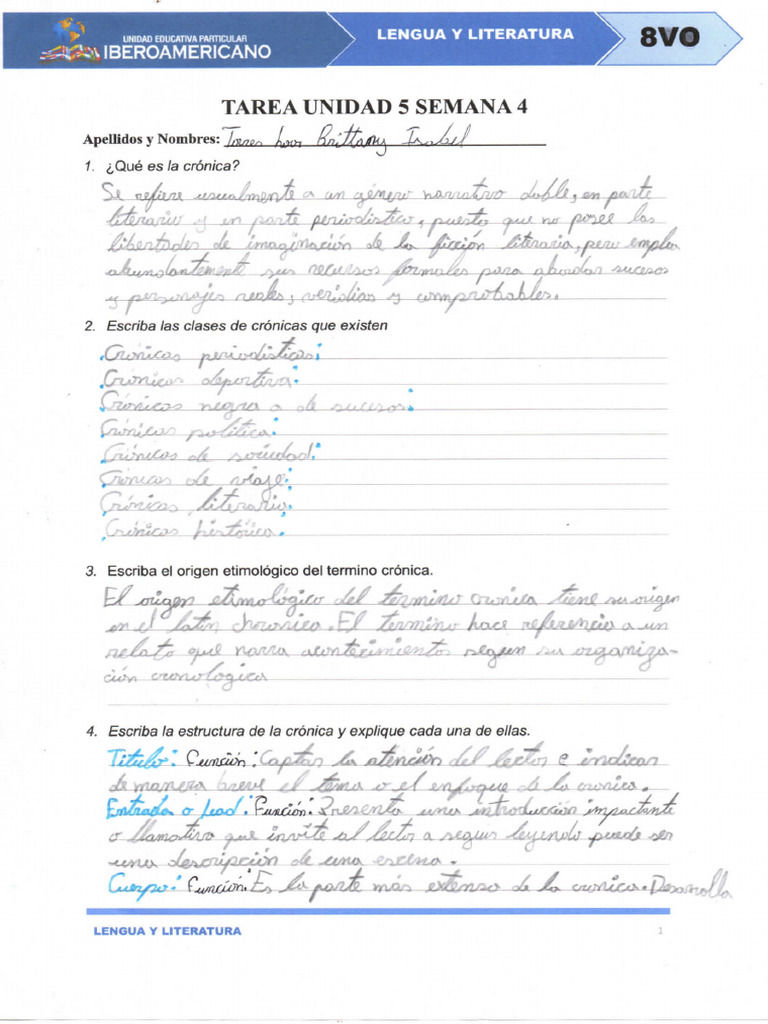 UNIDAD EDUCATIVA PARTICULAR
IBEROAMERICANO
LENGUA Y LITERATURA
8VO
TAREA UNIDAD 5 SEMANA 4
Apellidos y Nombres: Torres Loor Brittany Isabel
1. ¿Qué es la crónica?
Se refiere usualmente a un género narrativo doble, en parte
literario y en parte periodistico, puesto que no posee las
libertades de imaginación de la ficción literaria, pero emplea
abundantemente sus recursos formales para abordar sucesos
y personajes reales, veridias y comprobables.
2. Escriba las clases de crónicas que existen
Crónicas periodisticas:
Crónicas deportiva:
Crónicas negra o de sucesos:
Crónicas politica:
Crónicas de sociedad:
Crónicas de viaje:
Crónicas literario:
Crónicas histórica.
3. Escriba el origen etimológico del termino crónica.
El origen etimológico del termino cronica tiene su origen
en el latin chronica. El termino hace referencia a un
relato que narra acontecimientos segun su organiza-
ción cronologica
4. Escriba la estructura de la crónica y explique cada una de ellas.
Titulo: Función: Captar la atención del lector e indicar
de manera breve el tema o el enfoque de la cronica.
Entrada o lead: Función: Presenta una introducción impactante
o llamativa que invite al lector a seguir leyendo puede ser
una descripción de una escena.
Cuerpo: Función: Es la parte más extenso de la cronica. Desarrolla
LENGUA Y LITERATURA
1